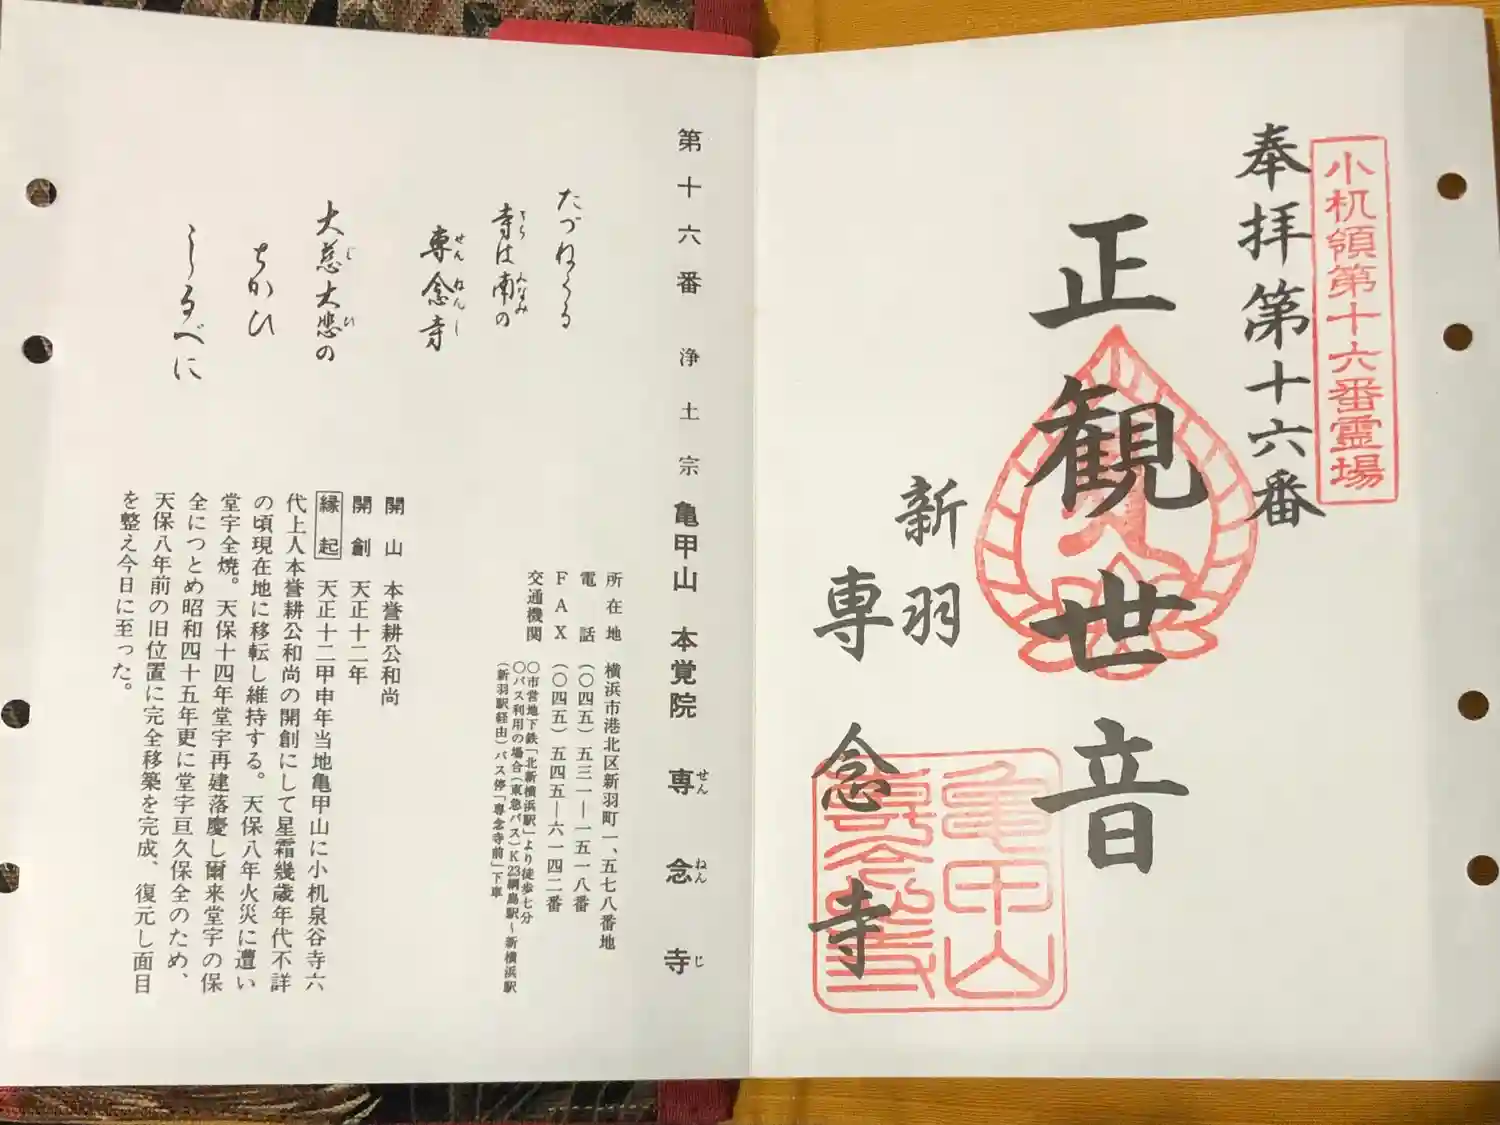 小机領第十六番霊場
奉拝第十六番
正観世音
新羽
専念寺
亀甲山
専念寺
第十六番 浄土宗 亀甲山 本覚院 専念寺
せんねんじ
たづねくる
寺は南の
てら みなみ
専念寺
せんねんじ
大慈大悲の
じ ひ
ちかひ
しるべに
所在地 横浜市港北区新羽町一、五七八番地
電話 (〇四五)五三一―一五一八番
FAX (〇四五)五四五―六一四二番
交通機関 〇市営地下鉄「北新横浜駅」より徒歩七分
〇バス利用の場合(東急バス)K23綱島駅~新横浜駅
(新羽駅経由)バス停「専念寺前」下車
開山 本誉耕公和尚
開創 天正十二年
縁起 天正十二甲申年当地亀甲山に小机泉谷寺六
代上人本誉耕公和尚の開創にして星霜幾歳年代不詳
の頃現在地に移転し維持する。天保八年火災に遭い
堂宇全焼。天保十四年堂宇再建落慶し爾来堂宇の保
全につとめ昭和四十五年更に堂宇亘久保全のため、
天保八年前の旧位置に完全移築を完成、復元し面目
を整え今日に至った。